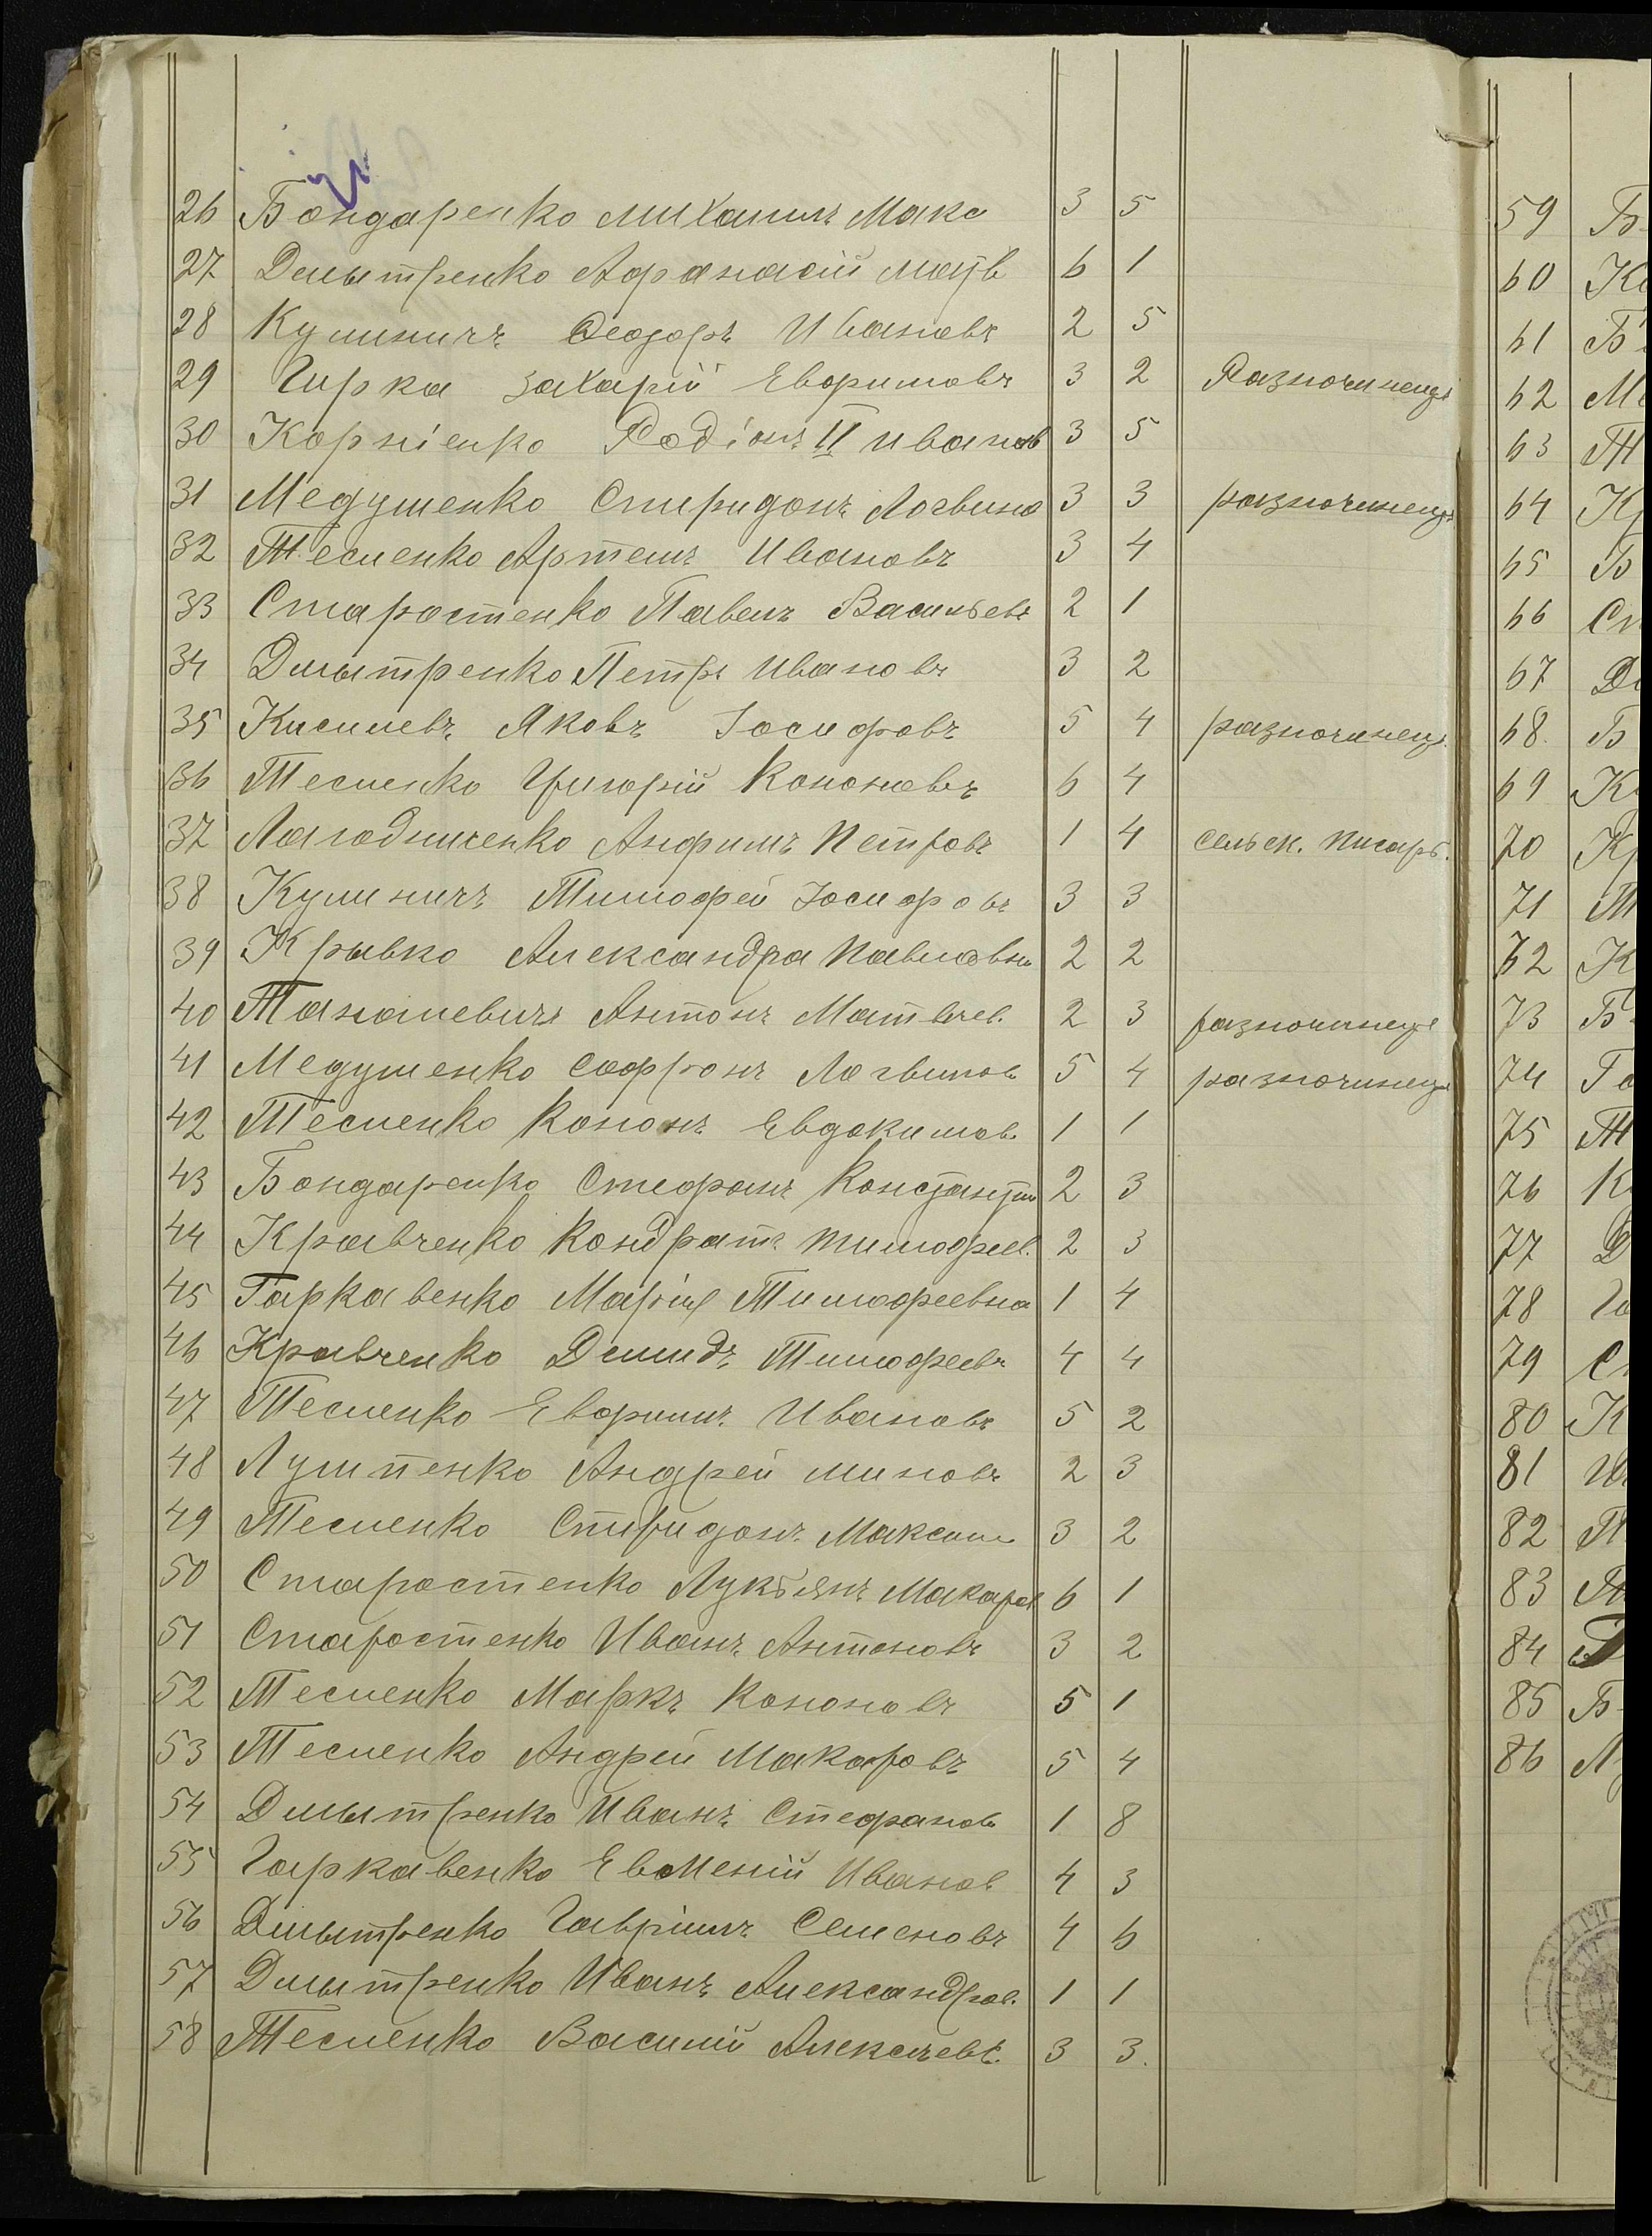 26 Бондаренко Михаилъ Макс 3 5
27 Дмытренко Афанасій Матв 6 1
28 Кулиничъ Феодоръ Ивановъ 2 5
29 Гирка Захарій Евфимовъ 3 2 Разночинецъ
30 Корніенко Родіонъ II Иванов 3 5
31 Медушенко Спиридонъ Логвино 3 3 разночинецъ
32 Тесленко Артемъ Ивановъ 3 4
33 Старостенко Павелъ Васильевъ 2 1
34 Дмытренко Петръ Ивановъ 3 2
35 Кисилевъ Яковъ Іосифовъ 5 4 разночинецъ
36 Тесленко Григорій Кононовъ 6 4
37 Лагодниченко Анфимъ Петровъ 1 4 сельск. писарь.
38 Кулиничъ Тимофей Іосифовъ 3 3
39 Крывко Александра Павловна 2 2
40 Таналевичъ Антонъ Матвеев. 2 3 разночинецъ
41 Медушенко Софронъ Логвинов 5 4 разночинецъ
42 Тесленко Кононъ Евдокимов. 1 1
43 Бондаренко Стефанъ Константин 2 3
44 Кравченко Кондратъ Тимофеев. 2 3
45 Гаркавенко Марія Тимофеевна 1 4
46 Кравченко Демидъ Тимофеевъ 4 4
47 Тесленко Евфимъ Ивановъ 5 2
48 Лушпенко Андрей Миновъ 2 3
49 Тесленко Спиридонъ Максим 3 2
50 Старостенко Лукьянъ Макаров 6 1
51 Старостенко Иванъ Антоновъ 3 2
52 Тесленко Маркъ Кононовъ 5 1
53 Тесленко Андрей Макаровъ 5 4
54 Дмытренко Иванъ Стефановъ 1 8
55 Гаркавенко Евмений Иванов 4 3
56 Дмытренко Гавріилъ Семеновъ 4 6
57 Дмытренко Иванъ Александров. 1 1
58 Тесленко Василій Алексеевъ. 3 3.
59 Б
60 К
61 Б
62 М
63 Т
64 К
65 Б
66 Ст
67 Д
68. Б
69 К
70 Кр
71 Т
72 К
73 Б
74 Га
75 Т
76 К
77 Д
78 Га
79 Ст
80 К
81
82
83 Т
84
85 Б
86 Л